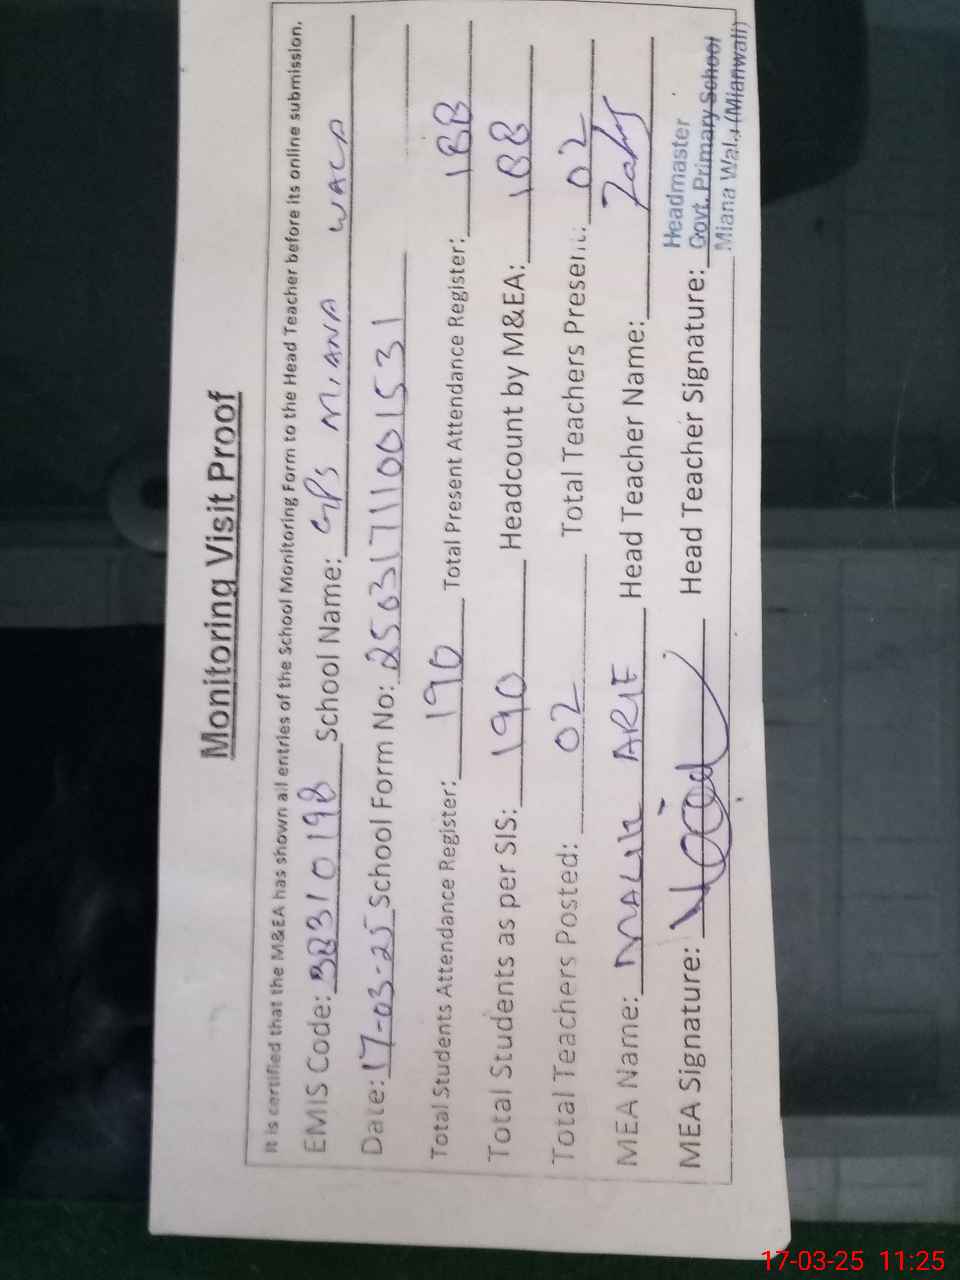 Monitoring Visit Proof
It is certified that the M&EA has shown all entries of the School Monitoring Form to the Head Teacher before its online submission.
EMIS Code: 38310198 School Name: GPS MIANA WALA
Date: 17-03-25 School Form No: 25031711001531
Total Students Attendance Register: 190 Total Present Attendance Register: 188
Total Students as per SIS: 190 Headcount by M&EA: 188
Total Teachers Posted: 02 Total Teachers Present: 02
MEA Name: MALIK ARIF Head Teacher Name:
MEA Signature: Head Teacher Signature:
Headmaster
Govt. Primary School
Miana Wala (Mianwali)
17-03-25 11:25